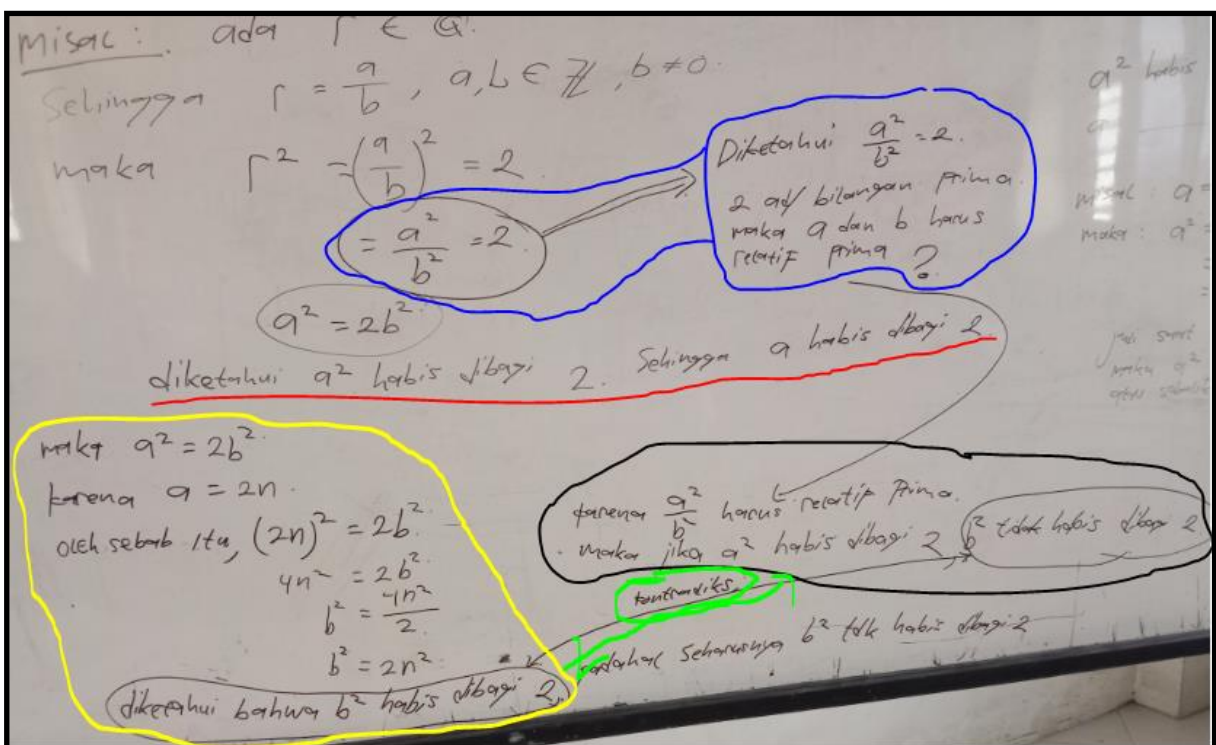 Misal : ada r ∈ Q.
Sehingga r = a/b , a,b ∈ Z , b ≠ 0.
maka r² = (a/b)² = 2
= a²/b² = 2
a² = 2b²
Diketahui a²/b² = 2.
2 ad/ bilangan prima.
maka a dan b harus
relatif prima ?
diketahui a² habis dibagi 2. Sehingga a habis dibagi 2
maka a² = 2b²
karena a = 2n.
oleh sebab itu, (2n)² = 2b²
4n² = 2b²
b² = 4n²/2.
b² = 2n²
diketahui bahwa b² habis dibagi 2
karena a²/b harus relatif prima.
maka jika a² habis dibagi 2 b² tidak habis dibagi 2
kontradiksi
padahal seharusnya b² tdk habis dibagi 2
a² habis
a
misal : a =
maka : a² =
=
=
maka a²